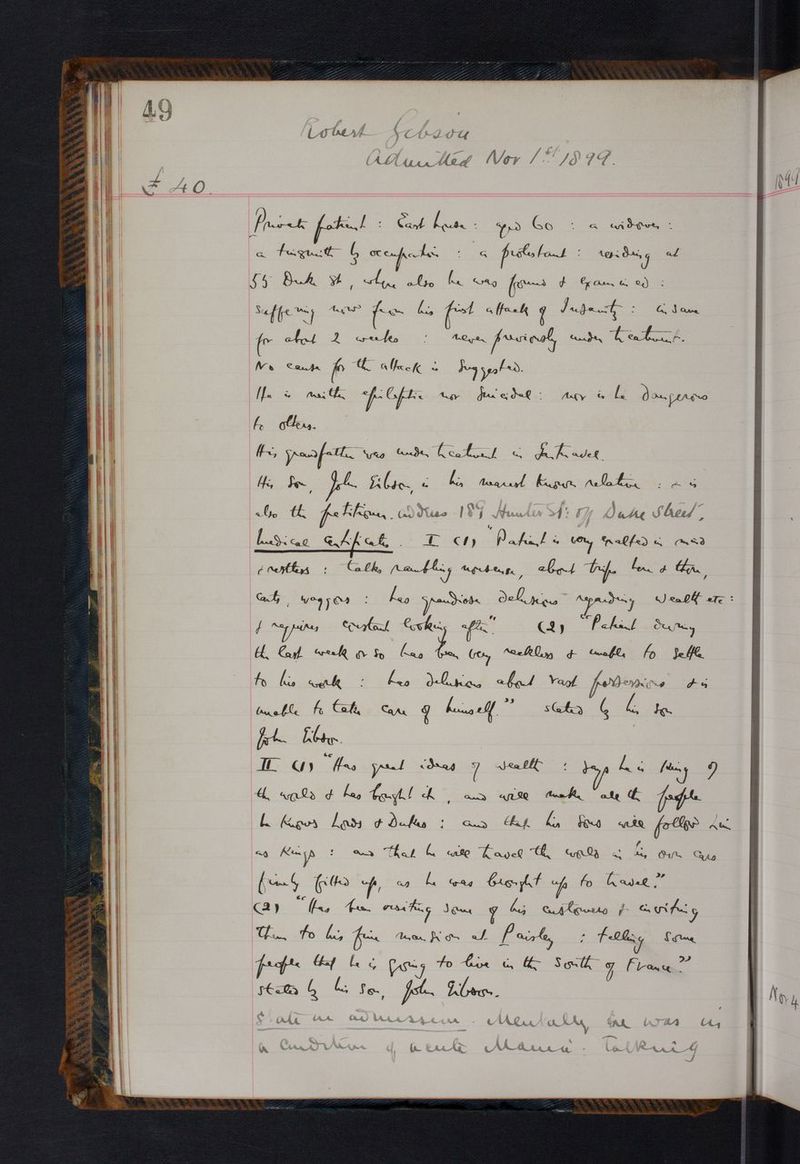 49
Robert Gibson
Admitted Nov 1st 1899.
£ 40.
1899
Private patient : East House : aged 60 : a widower :
a tinsmith by occupation : a protestant : residing at
55 Duke St, where also he was found & examined :
Suffering now from his first attack of Insanity : insane
for about 2 weeks : never previously under treatment.
No cause for the attack is suggested.
He is neither epileptic nor suicidal : nor is he dangerous
to others.
His grandfather was under treatment in Gartnavel.
His son, John Gibson, is his nearest known relative : & is
also the petitioner. address 189 Hunter St: off Duke Street,
Medical Certificate. I (1) "Patient is very exalted in mind
& restless : talks rambling nonsense, about trips here & there,
carts, waggons : has grandiose delusions regarding wealth etc :
& requires constant looking after." (2) "Patient during
the last week or so has been very reckless & unable to settle
to his work : has delusions about vast possessions & is
unable to take care of himself." stated by his son
John Gibson.
II (1) "Has great ideas of wealth : says he is King of
the world & has bought it, and will make all the people
he knows Lords & Dukes : and that his sons will follow him
as Kings : and that he will travel the world in his own cars
finely fitted up, as he was brought up to travel."
(2) "Has been visiting some of his customers & inviting
them to his fine mansion at Paisley : telling some
people that he is going to live in the South of France."
stated by his son, John Gibson.
Nov 4
State on admission. Mentally he was in
a condition of acute Mania. Talking